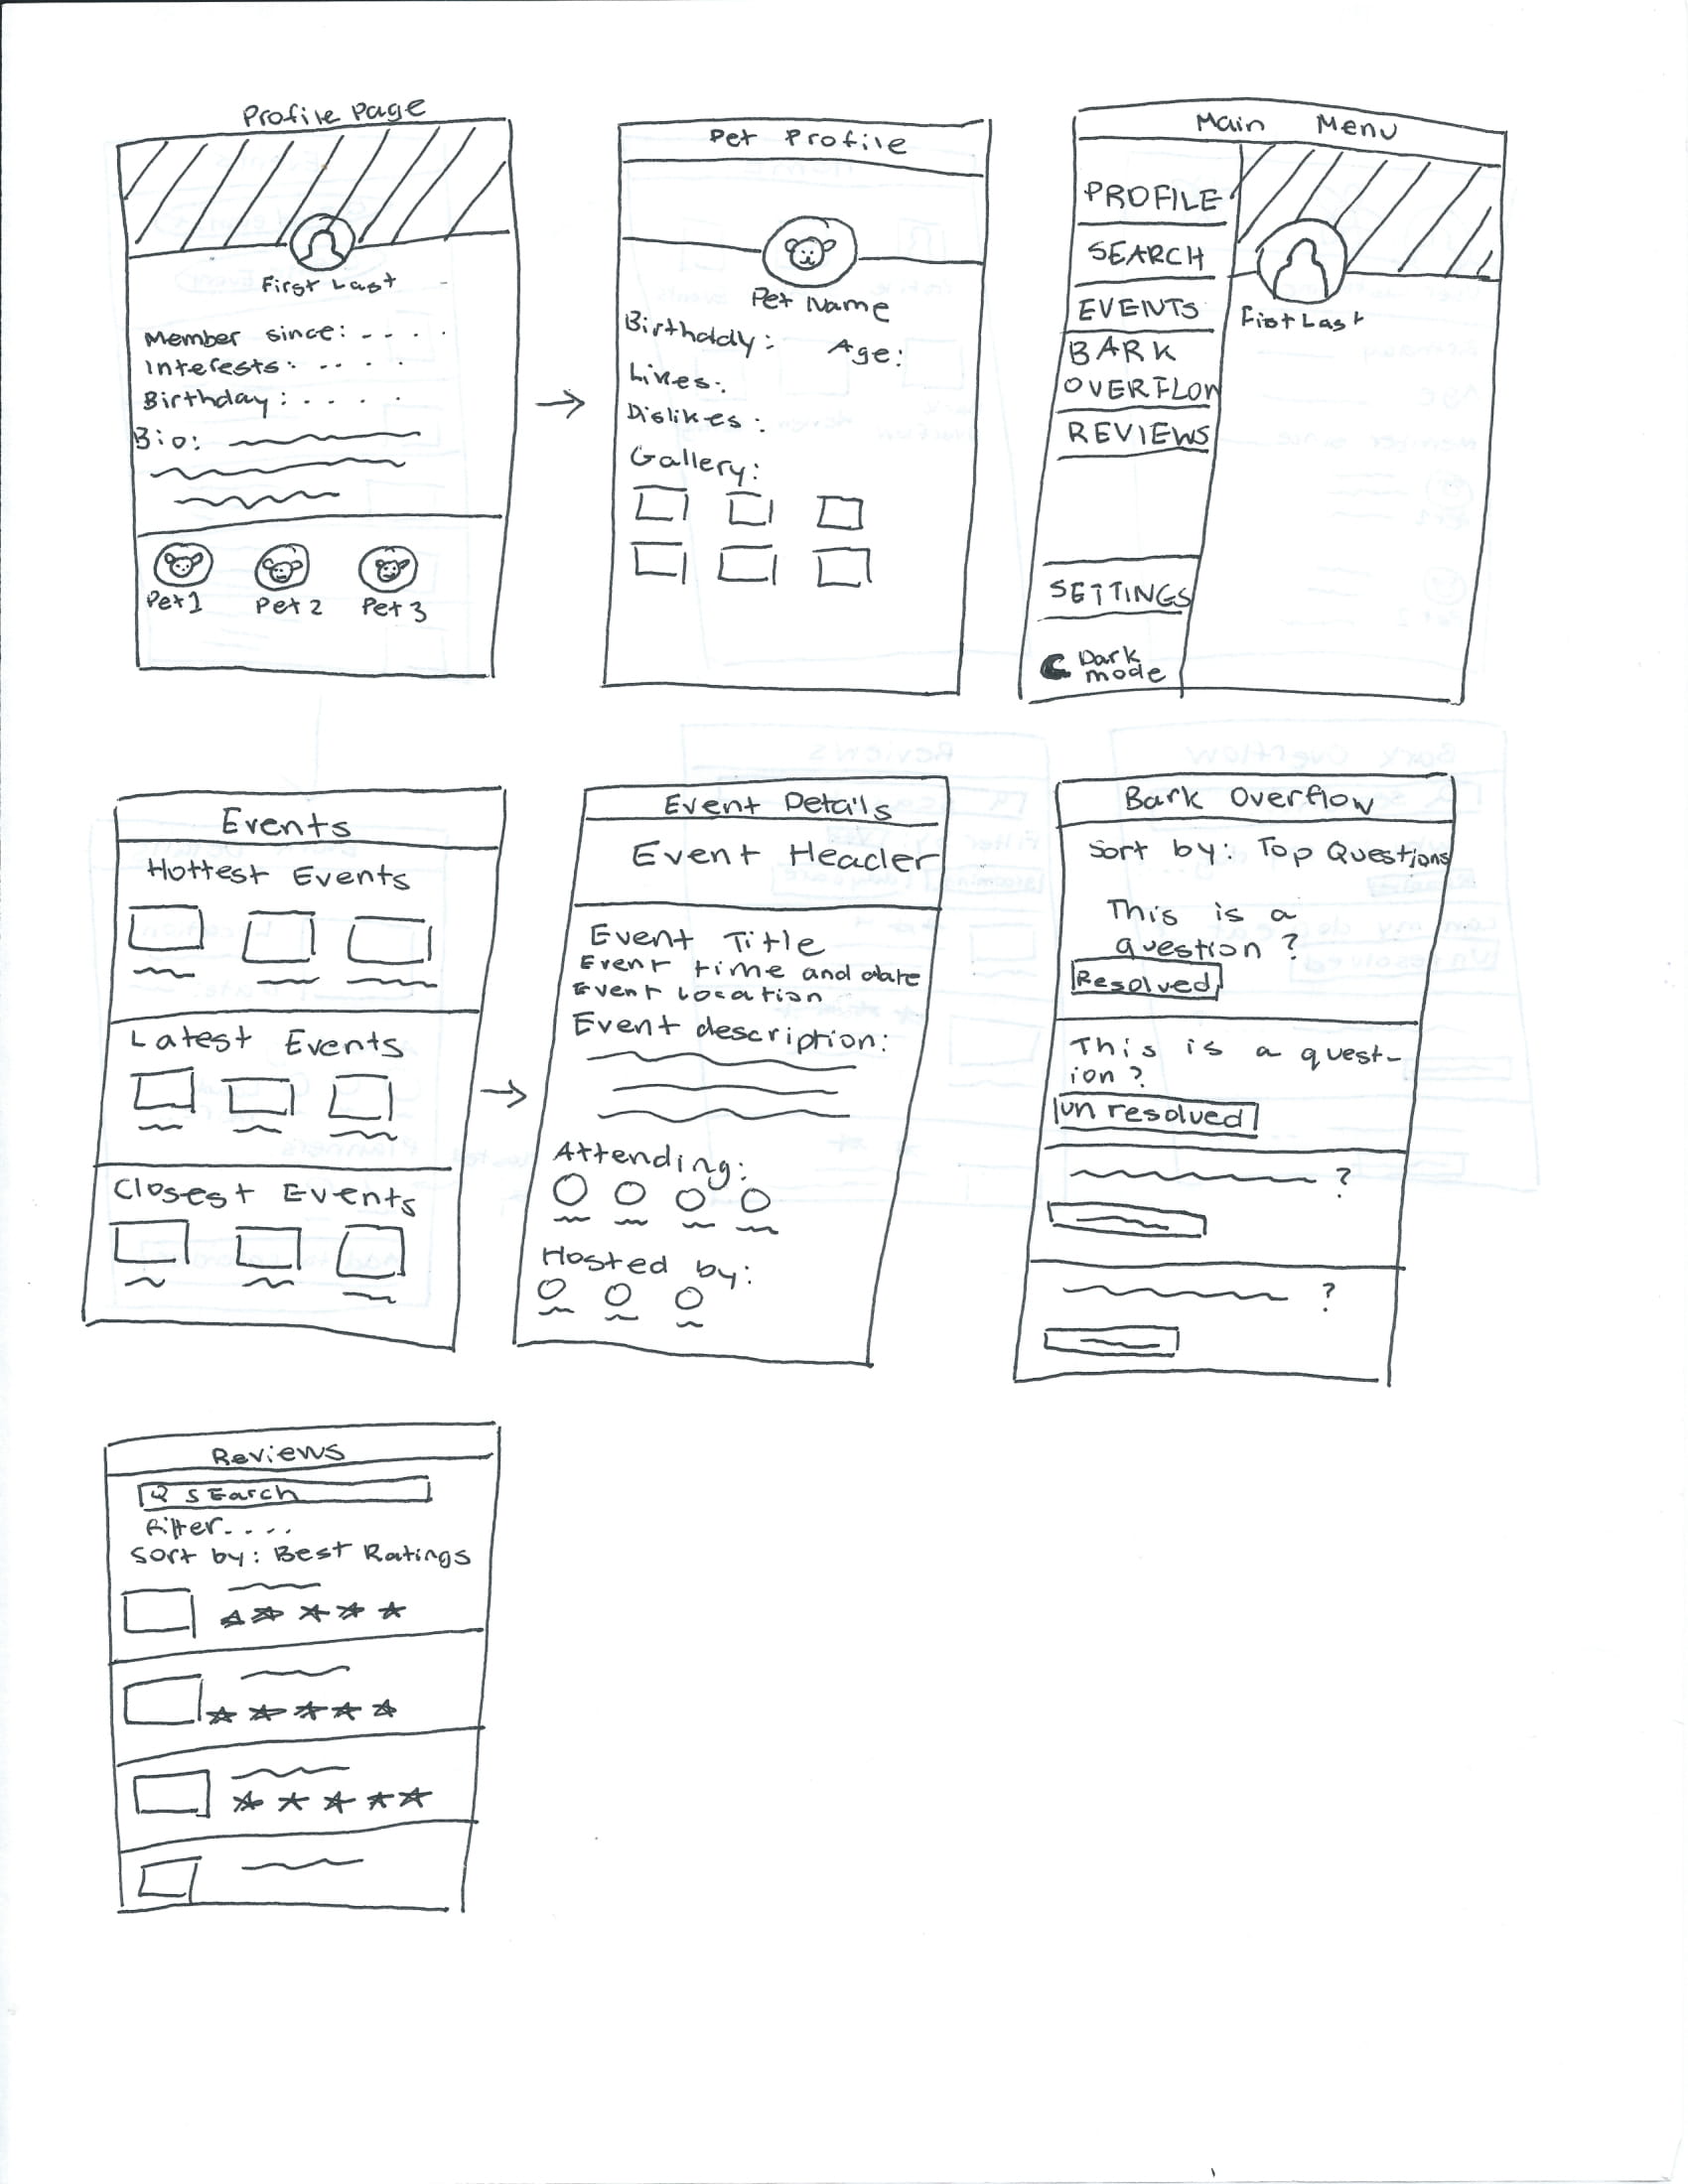 Profile Page
First Last
Member since: . . . .
Interests: . . . . .
Birthday: . . . .
Bio:
Pet 1 Pet 2 Pet 3
Pet Profile
Pet Name
Birthday: Age:
Likes:
Dislikes:
Gallery:
Main Menu
PROFILE
SEARCH
EVENTS
BARK
OVERFLOW
REVIEWS
SETTINGS
Dark
mode
First Last
Events
Hottest Events
Latest Events
Closest Events
Event Details
Event Header
Event Title
Event time and date
Event Location
Event description:
Attending:
Hosted by:
Bark Overflow
Sort by: Top Questions
This is a
question ?
Resolved
This is a quest-
ion ?
unresolved
?
?
Reviews
Search
Filter . . . .
Sort by: Best Ratings